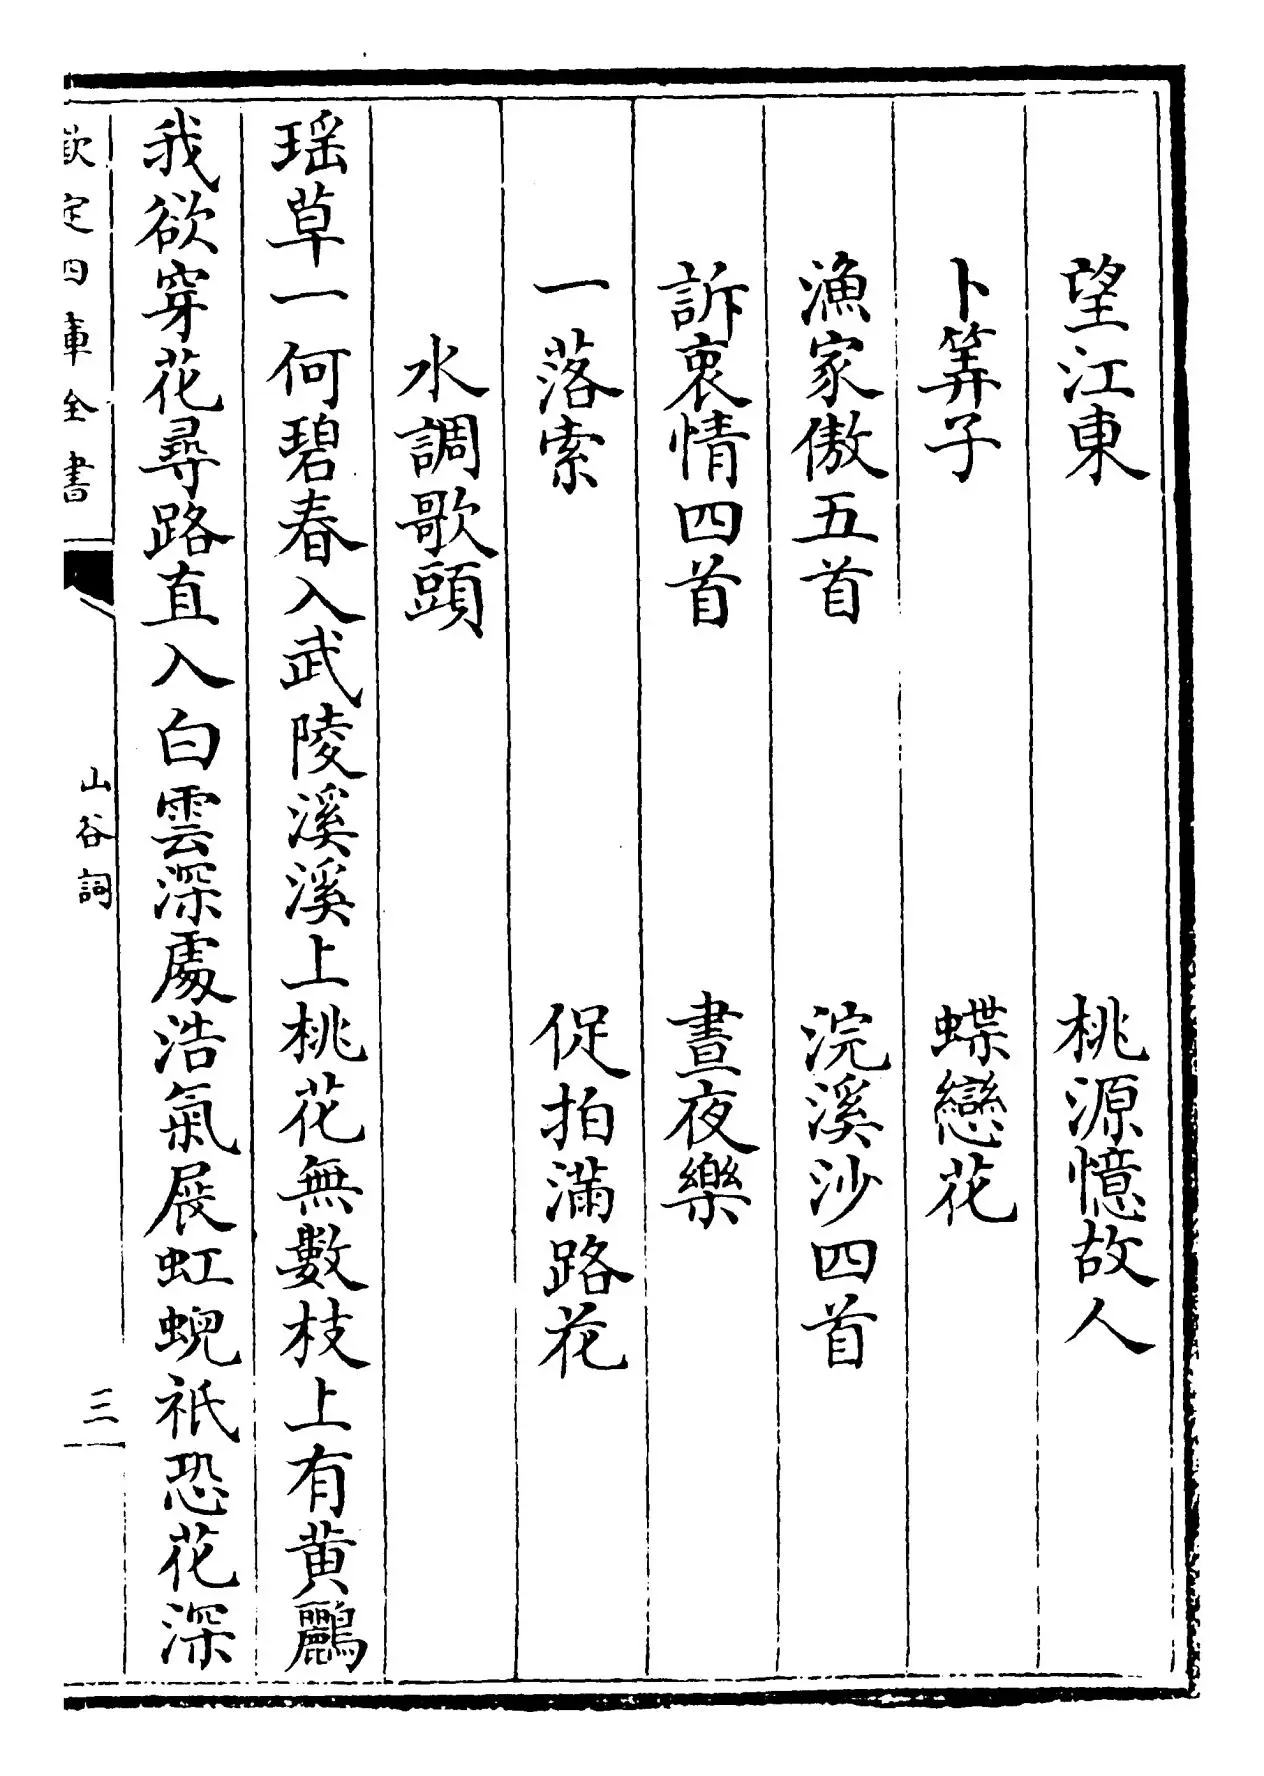 望江東　桃源憶故人
卜筭子　蝶戀花
漁家傲五首　浣溪沙四首
訴衷情四首　晝夜樂
一落索　促拍滿路花
水調歌頭
瑶草一何碧春入武陵溪溪上桃花無數枝上有黄鸝
我欲穿花尋路直入白雲深處浩氣展虹蜺祇恐花深
欽定四庫全書
山谷詞
三